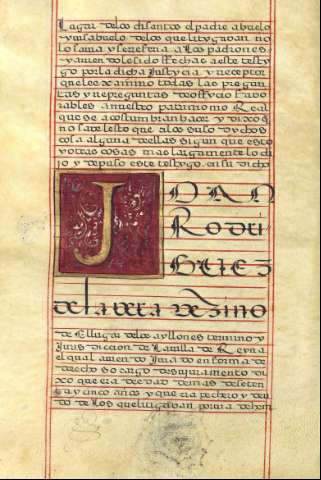 lugar de los chisantos el padre abuelo
y visabuelo de los que litygavan no
lo savia y se referia a Los padrones
y avien dole sido ffechas a este testy
go por la dicha Justicia y receptor
que le exsamino todas las pregun
tas y repreguntas de offycio favo
rables a nuestro patrimonio Real
que se acostumbran hacer y dixo q
no save les to que a los suso dychos
cosa alguna dellas sigun que esto
y otras cosas mas largamente lo di
jo y depuso este testygo. en su dicho
JOAN
RODRI
GUEZ
de la Vera Vezino
de El lugar de los ayllones termino y
Juris diccion de La villa de Reyna
el qual avien do Jura do en forma de
derecho so cargo des juramento di
xo que era de edad de mas de seten
ta y cinco años y que era pechero y deu
do de Los que litigavan porna de hyn